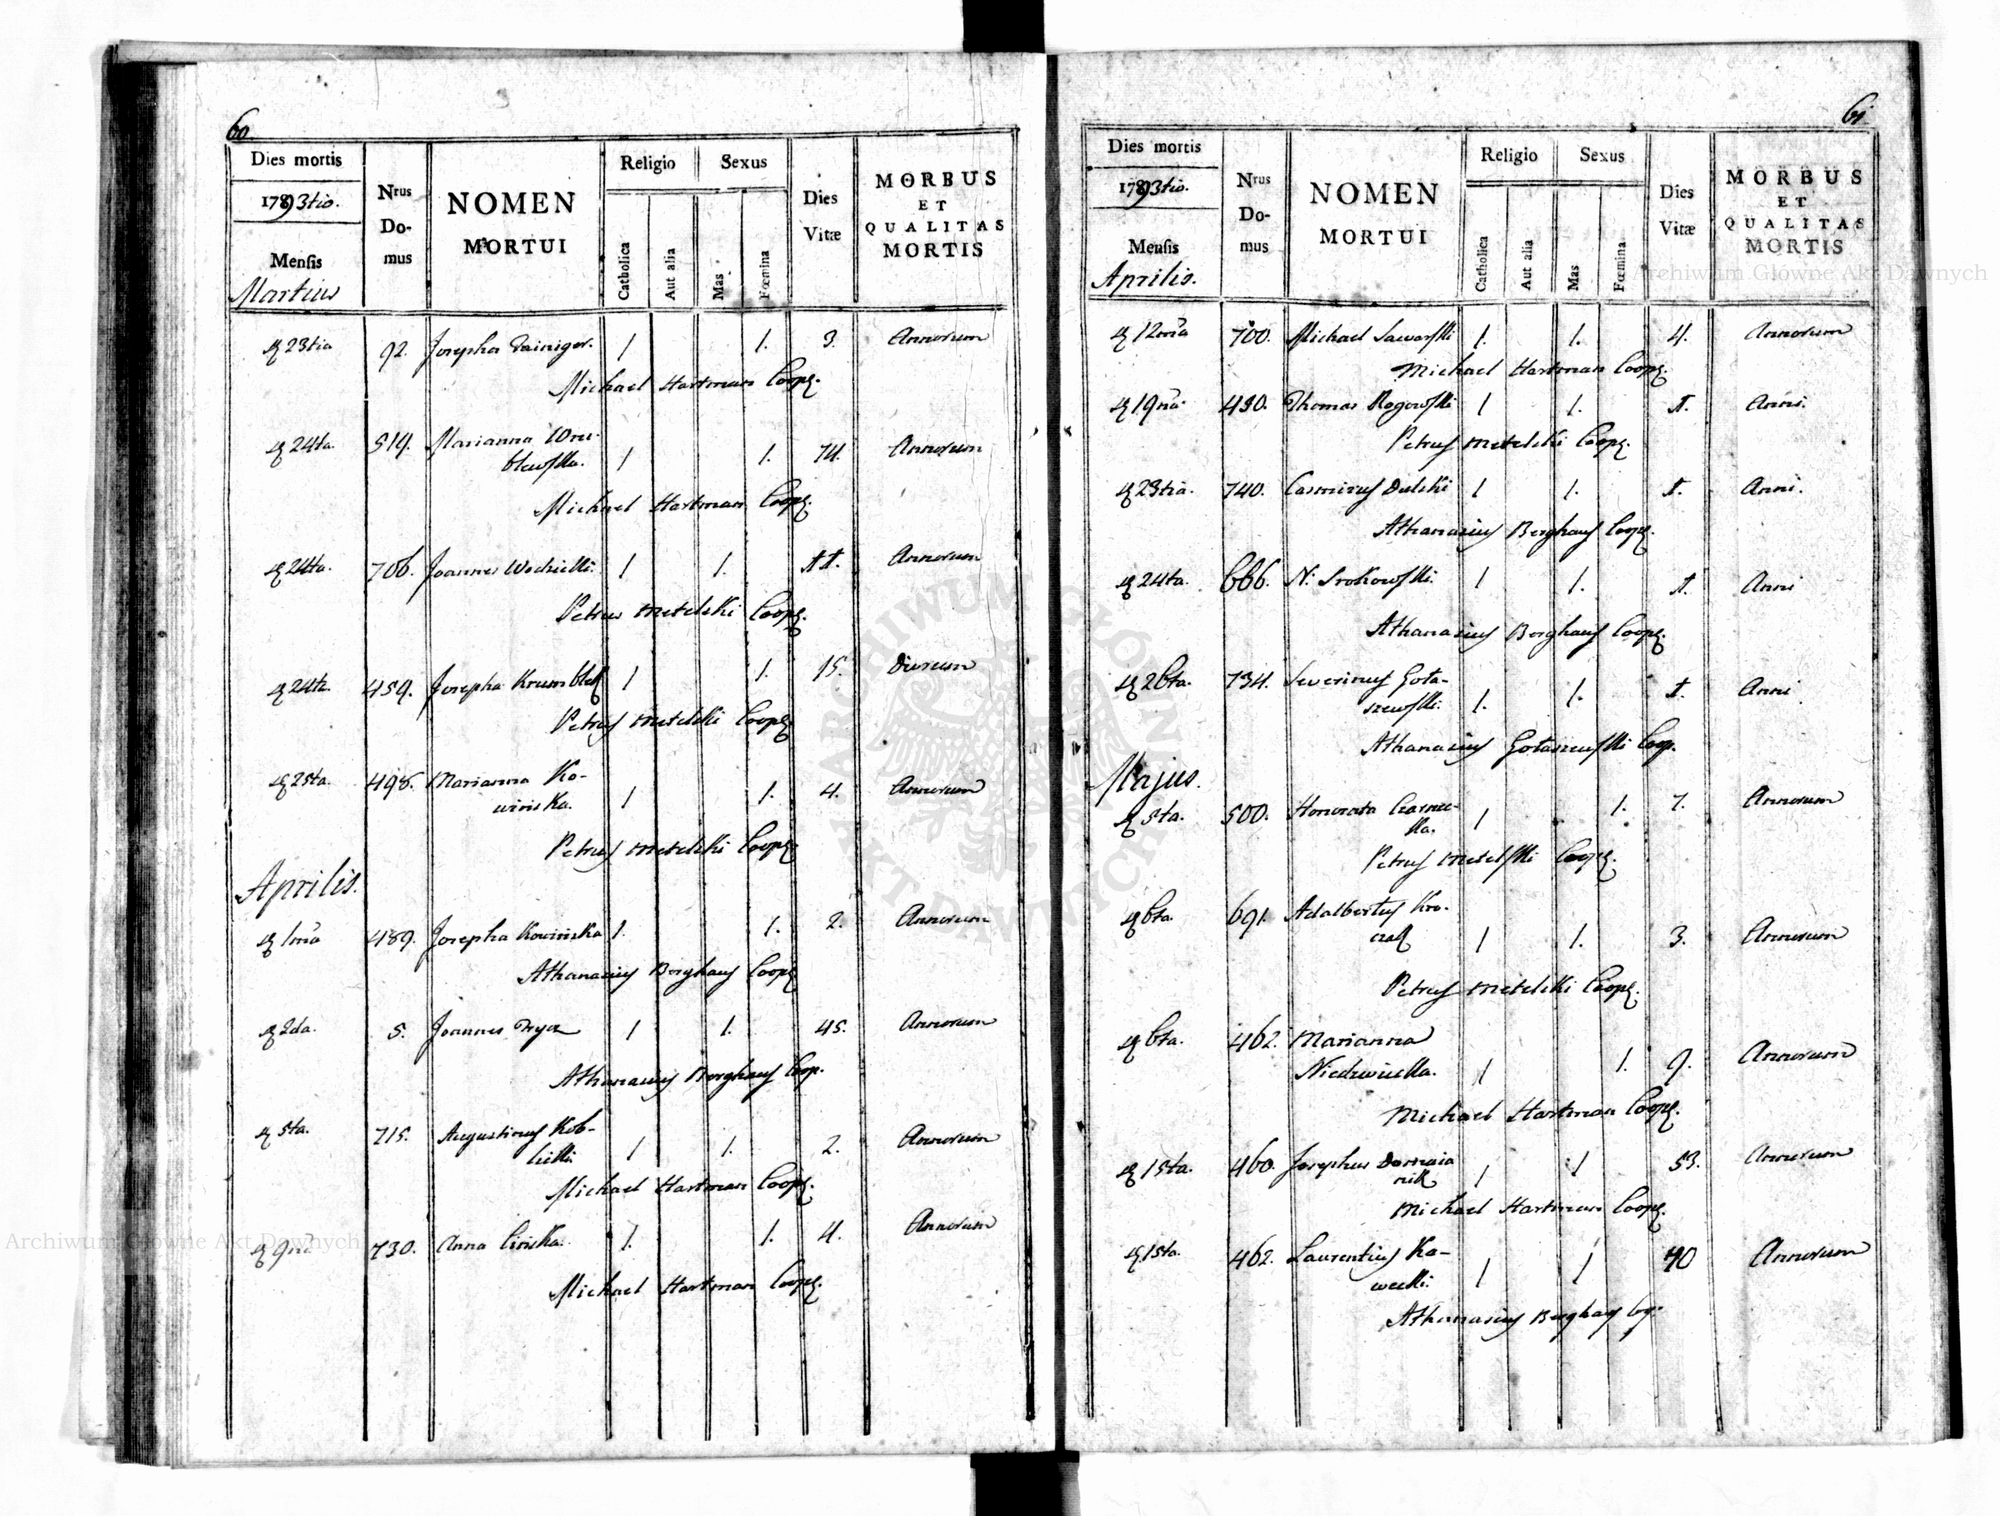 60.
Dies mortis
1793tio.
Mensis
Martius
Nrus Domus
NOMEN MORTUI
Religio
Catholica
Aut alia
Sexus
Mas
Fœmina
Dies Vitæ
MORBUS ET QUALITAS MORTIS
23tia 92. Josepha 1 1. 3. Annorum
Michael Hartman Coop.
24ta. 514. Marianna Wru- 74. Annorum
blewska. 1 1.
Michael Hartman Coop.
24ta. 706. Joannes 1 1. Annorum
Petrus Metelski Coop.
24ta. 459. Josepha Krumbleck 1 1. 15. Dierum
Petrus Metelski Coop.
25ta. 498. Marianna Ko- 4. Annorum
winska. 1 1.
Petrus Metelski Coop.
Aprilis.
1ma 489. Josepha Kowinska 1. 1. 2. Annorum
Athanasius Berghaus Coop.
2da. 5. Joannes 1 1. 45. Annorum
Athanasius Berghaus Coop.
5ta. 715. Augustinus Kob- 2. Annorum
1 1.
Michael Hartman Coop.
9na 730. Anna Linska. 1. 1. 4. Annorum
Michael Hartman Coop.
61.
Dies mortis
1793tio.
Mensis
Aprilis.
Nrus Domus
NOMEN MORTUI
Religio
Catholica
Aut alia
Sexus
Mas
Fœmina
Dies Vitæ
MORBUS ET QUALITAS MORTIS
12ma 700. Michael 1. 1. 4. Annorum
Michael Hartman Coop.
19na 430. Thomas Rogowski 1 1. 1. Anni.
Petrus Metelski Coop.
23tia. 740. Casmirus Dulski 1 1. 1. Anni.
Athanasius Berghaus Coop.
24ta. 666. N: Srokowski. 1 1. 1. Anni
Athanasius Berghaus Coop.
26ta. 734. Severinus Gota- 1. Anni.
szewski. 1. 1.
Athanasius Gotaszewski Coop.
Majus.
5ta. 500. Honorata Czarnec- 1. 7. Annorum
ka. 1
Petrus Metelski Coop.
6ta. 691. Adalbertus Kro-
czak 1 1. 3. Annorum
Petrus Metelski Coop.
6ta. 462. Marianna
Niedzwiecka. 1 1. 9. Annorum
Michael Hartman Coop.
15ta. 460. Josephus 1 1 53. Annorum
Michael Hartman Coop.
15ta. 462. Laurentius Ka- 40 Annorum
wecki. 1 1
Athanasius Berghaus
Archiwum Główne Akt Dawnych
Archiwum Główne Akt Dawnych
ARCHIWUM GŁÓWNE AKT DAWNYCH